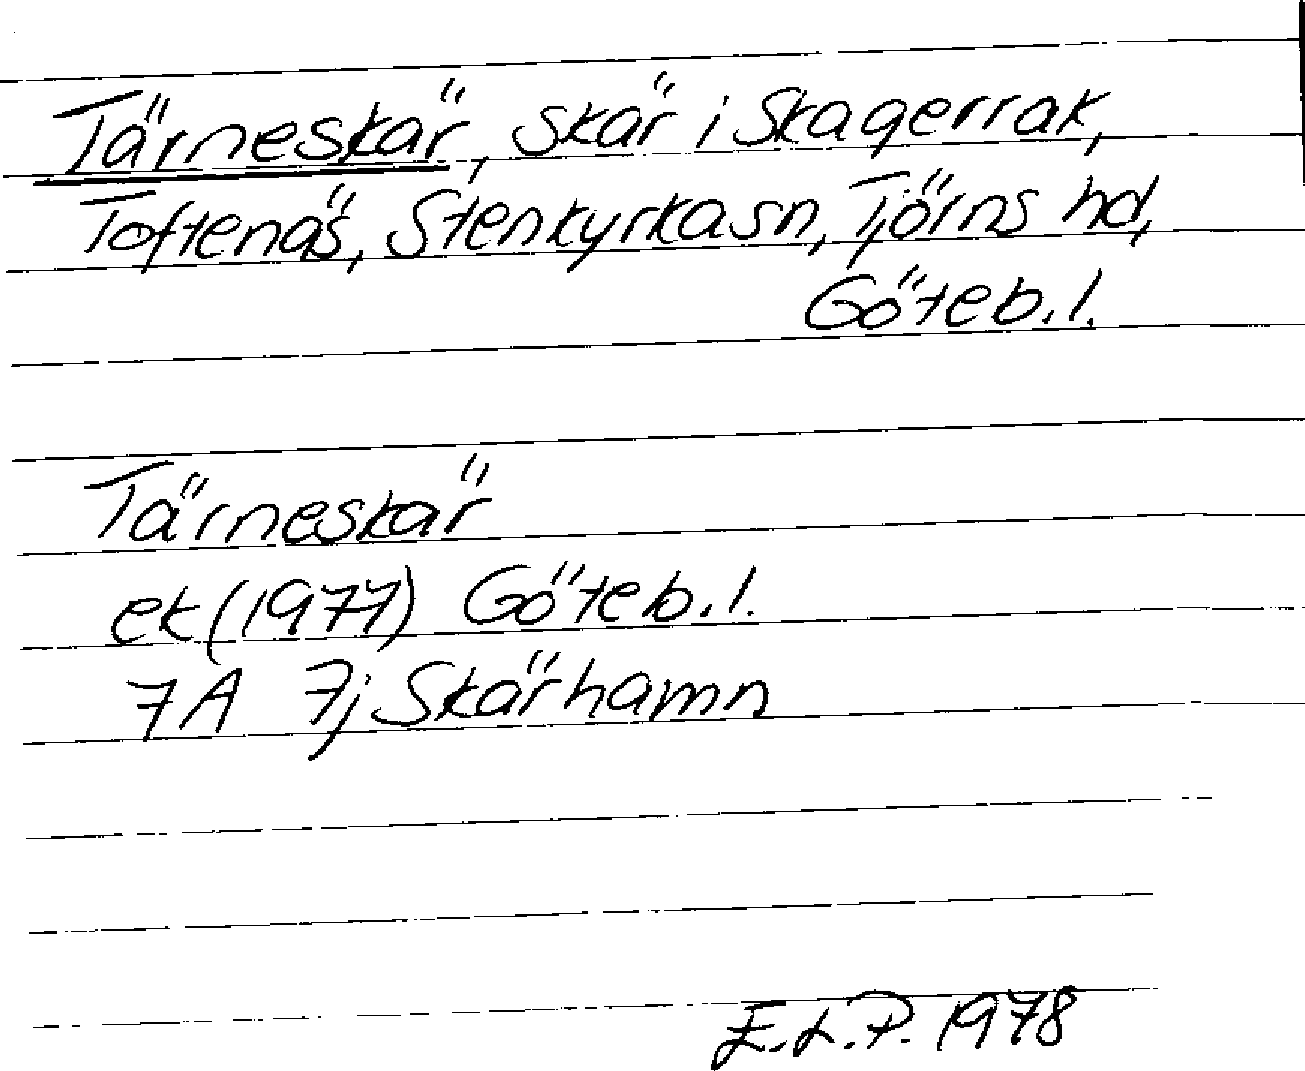 Tärneskär, skär i Skagerrak,
Toftenäs, Stenkyrka sn, Tjörns hd,
Göteb. l.
Tärneskär
ek (1977) Göteb. l.
7A 7j Skärhamn
E.L.P. 1978